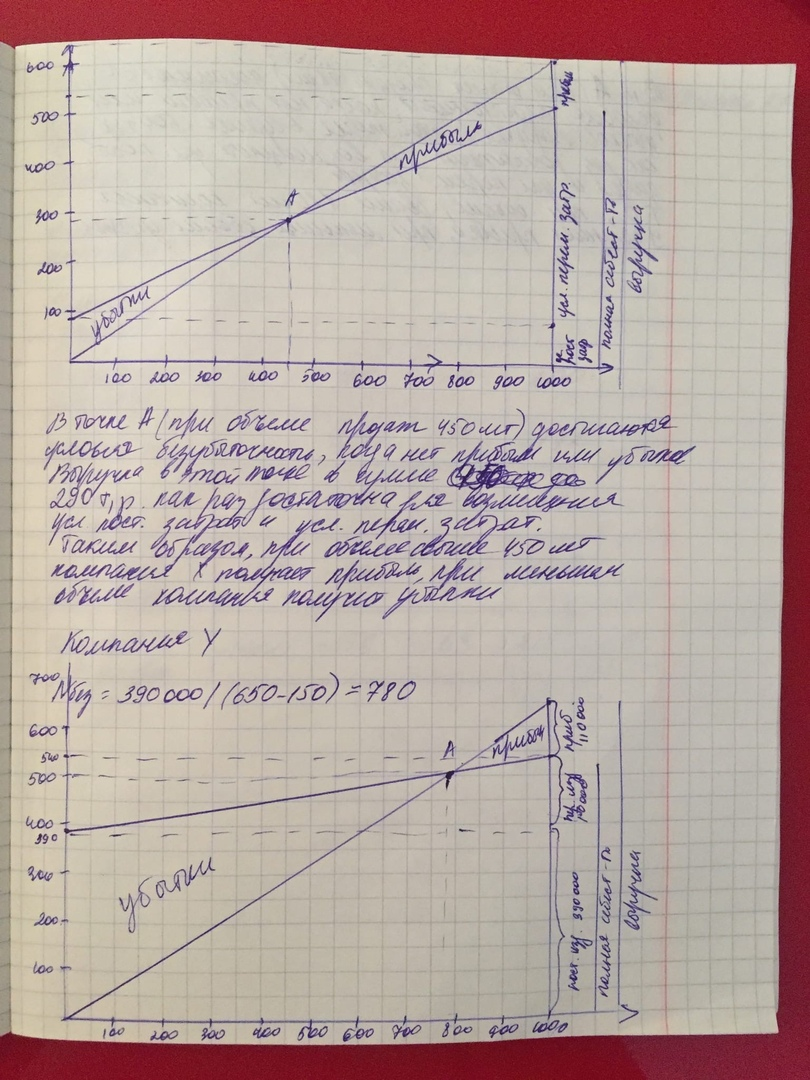 600
500
400
300
200
100
100 200 300 400 500 600 700 800 900 1000
А
прибыль
убытки
прибыль
усл. перем. затр.
полная себест-ть
выручка
В точке А (при объеме продаж 450 шт) достигаются
условия безубыточности, когда нет прибыли или убытков
Выручка в этой точке в сумме
290 т.р. как раз достаточна для возмещения
усл пост. затрат и усл. перем. затрат.
Таким образом, при объеме свыше 450 шт
компания X получает прибыль, при меньшем
объеме компания получит убытки
Компания Y
Nбез = 390000/(650-150) = 780
700
600
540
500
400
390
300
200
100
100 200 300 400 500 600 700 800 900 1000
А
прибыль
убытки
приб 110000
пер. изд
пост. изд. 390000
полная себест-ть
выручка